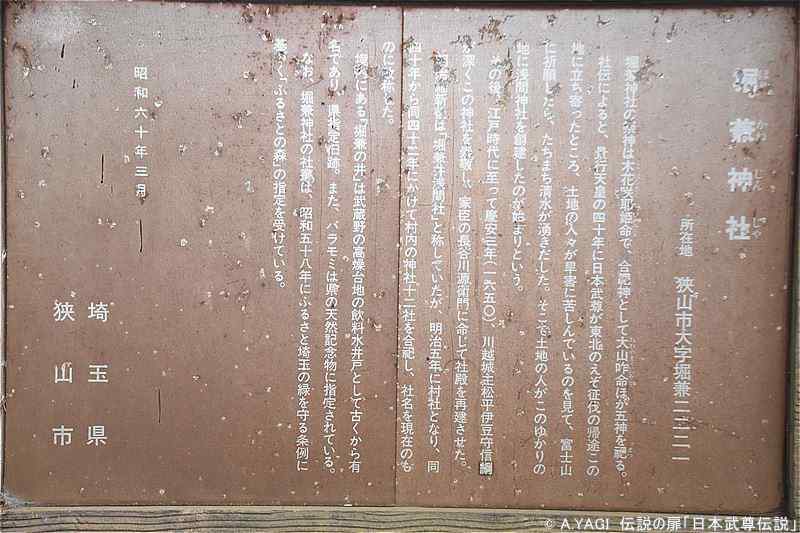 堀兼神社
ほり かね じん じゃ
所在地 狭山市大字堀兼二二二一
堀兼神社の祭神は木花咲耶姫命で、合祀神として大山咋命ほか五神を祀る。
社伝によると、景行天皇の四十年に日本武尊が東北のえぞ征伐の帰途この
地に立ち寄ったところ、土地の人々が旱害に苦しんでいるのを見て、富士山
に祈願したら、たちまち清水が湧きだした。そこで土地の人がこのゆかりの
地に浅間神社を創建したのが始まりという。
その後、江戸時代に至って慶安三年(一六五〇)、川越城主松平伊豆守信綱
深くこの神社を 、家臣の長谷川源右衛門に命じて社殿を再建させた。
明治維新前は「堀兼井浅間社」と称していたが、明治五年に村社となり、同
四十年から同四十二年にかけて村内の神社十二社を合祀し、社名を現在のも
のに改称した。
境内にある「堀兼の井」は武蔵野の高燥台地の飲料水井戸として古くから有
名であり、県指定旧跡。また、バラモミは県の天然記念物に指定されている。
なお、堀兼神社の社叢は、昭和五十八年にふるさと埼玉の緑を守る条例に
基づくふるさとの森」の指定を受けている。
昭和六十年三月
埼玉県
狭山市
© A.YAGI 伝説の扉「日本武尊伝説」